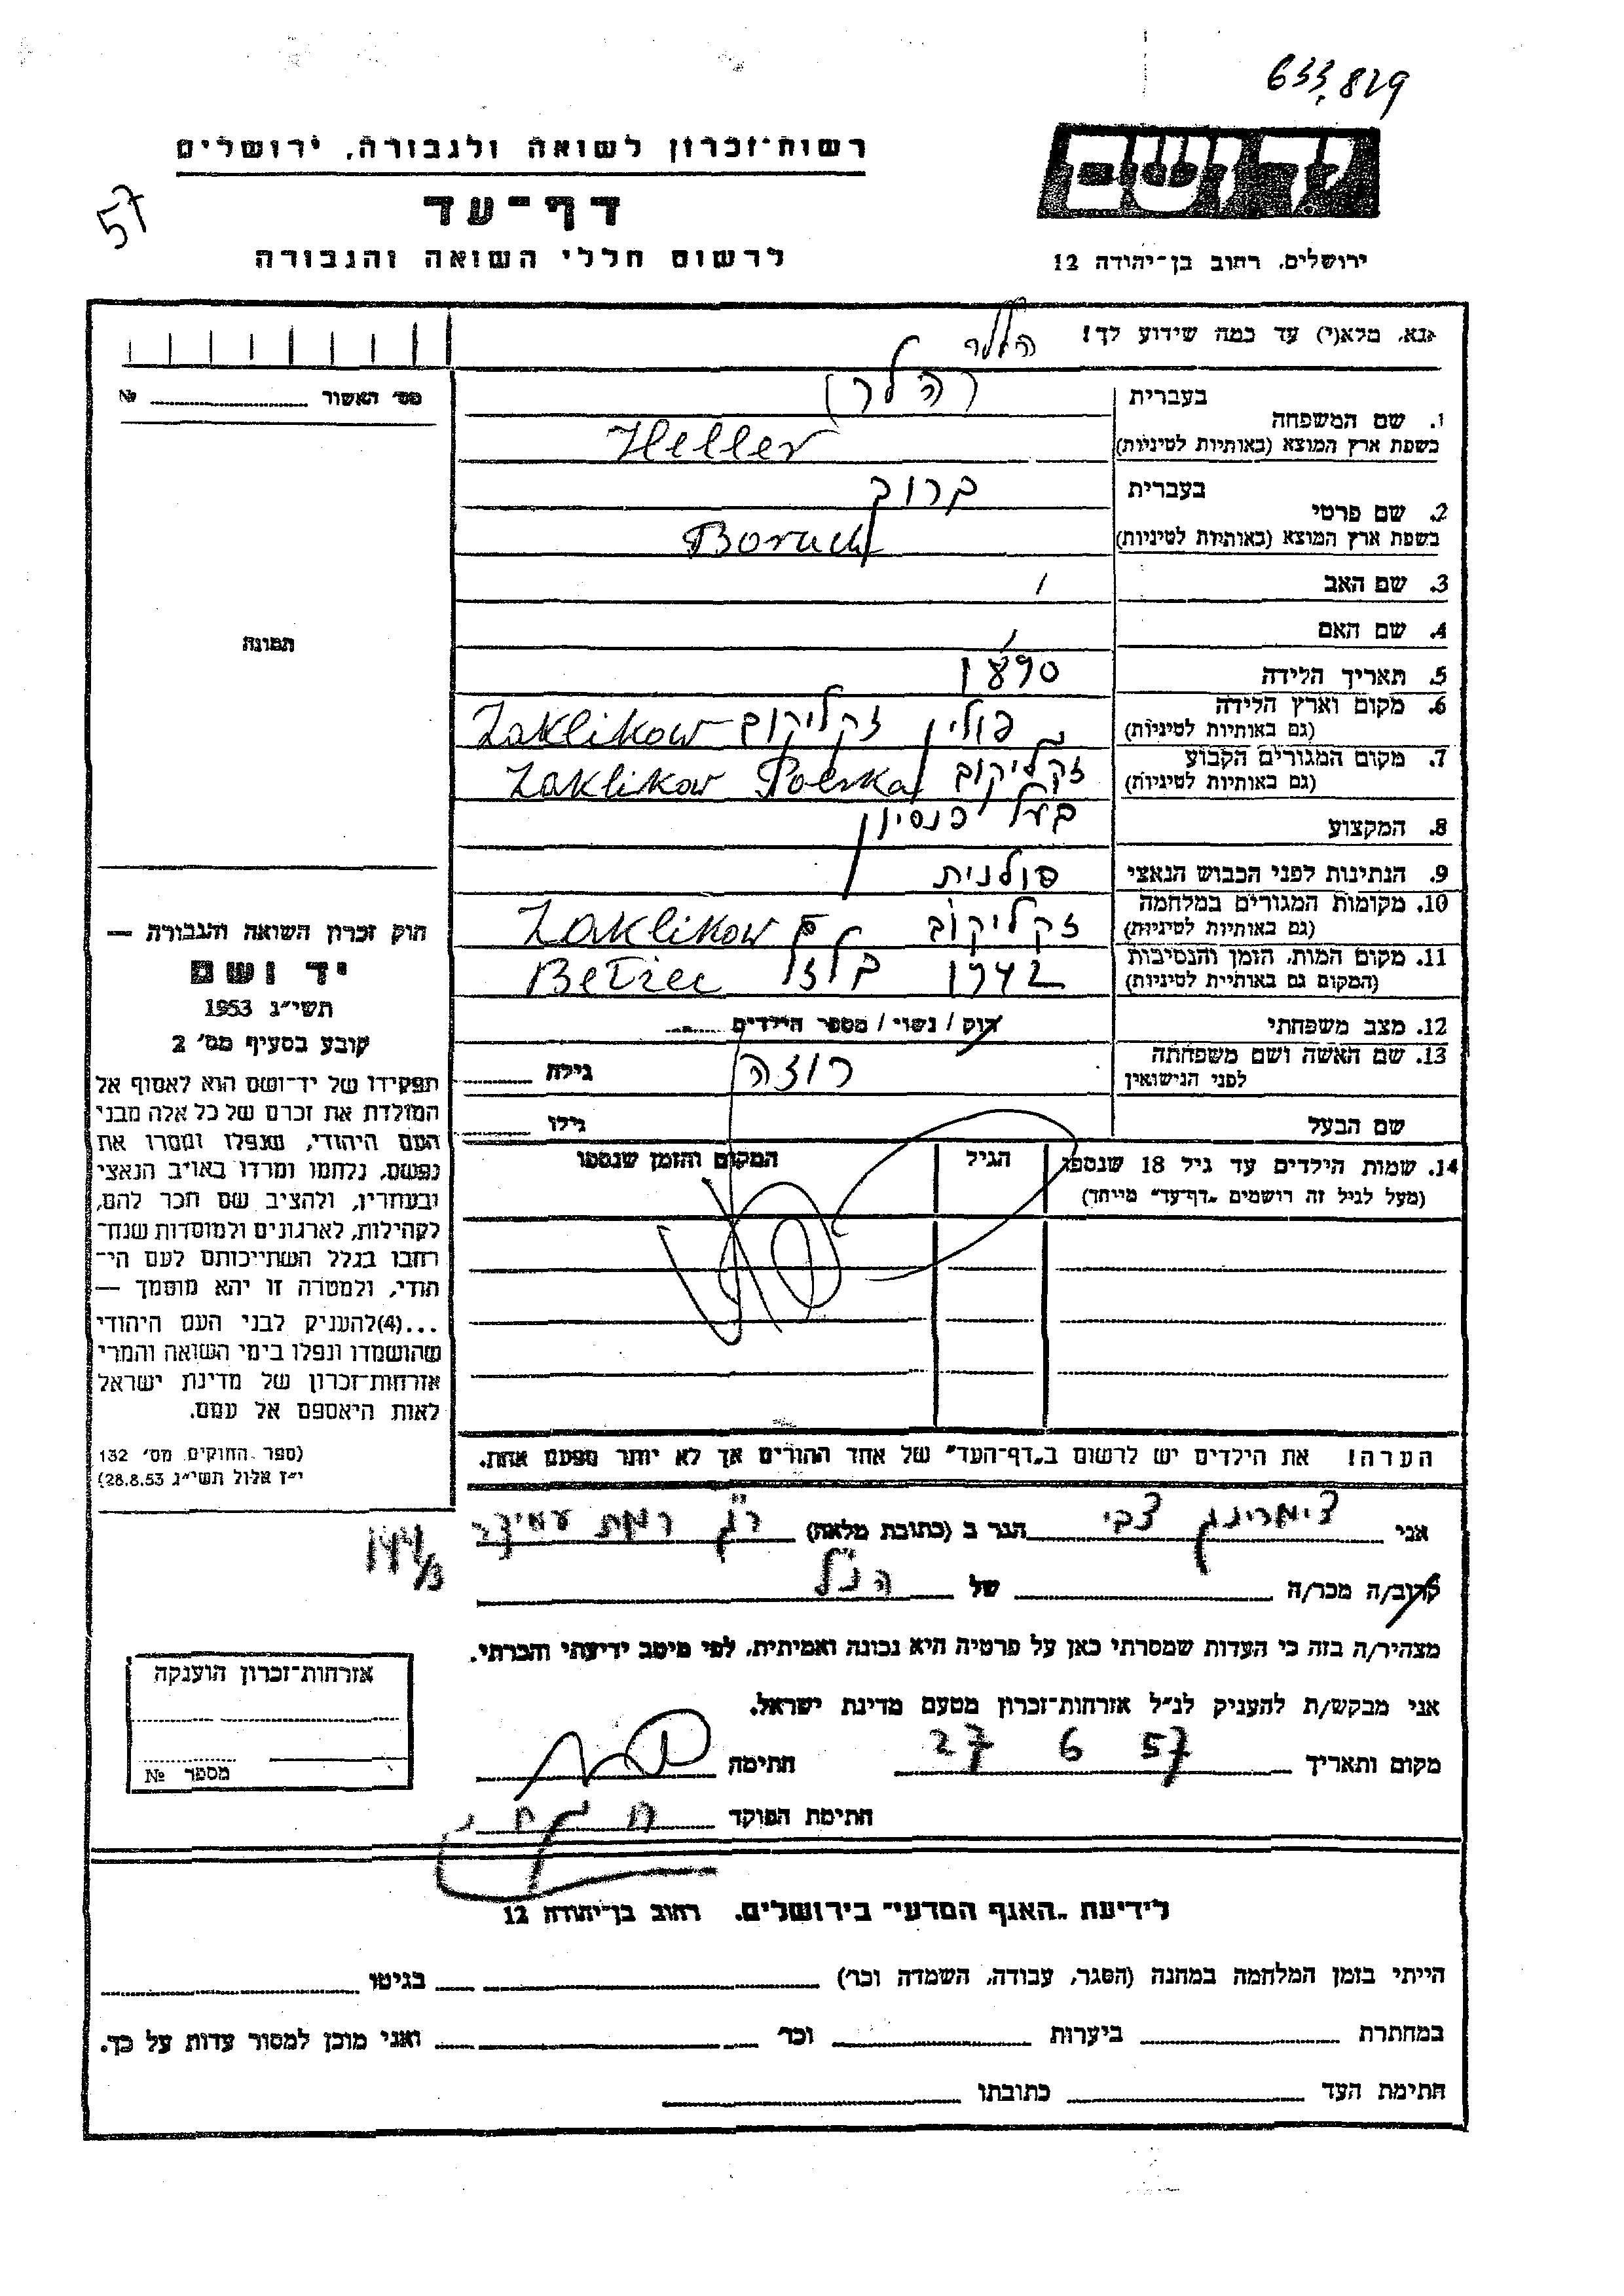 633,829
רשות־זכרון לשואה ולגבורה, ירושלים
יד ושם
דף־עד
57
לרשום חללי השואה והגבורה
ירושלים, רחוב בן־יהודה 12
נא, מלא(י) עד כמה שידוע לך!
הללר
מס׳ האשור № 
בעברית (הלר)
1. שם המשפחה
בשפת ארץ המוצא (באותיות לטיניות) Heller
בעברית ברוך
2. שם פרטי
בשפת ארץ המוצא (באותיות לטיניות) Boruch
3. שם האב
4. שם האם
תמונה
5. תאריך הלידה 1890
6. מקום וארץ הלידה
(גם באותיות לטיניות) פולין זקליקוב Zaklikow
7. מקום המגורים הקבוע
(גם באותיות לטיניות) זקליקוב Zaklikow Polska
8. המקצוע בעל פנסיון
9. הנתינות לפני הכבוש הנאצי פולנית
10. מקומות המגורים במלחמה
(גם באותיות לטיניות) זקליקוב Zaklikow
11. מקום המות, הזמן והנסיבות
(המקום גם באותיית לטיניות) 1942 בלזל Betzec
12. מצב משפחתי רוק / נשוי / מספר הילדים
13. שם האשה ושם משפחתה
לפני הנישואין רוזה גילה
שם הבעל גילו
14. שמות הילדים עד גיל 18 שנספו
(מעל לגיל זה רושמים „דף־עד״ מייחד)
הגיל
המקום והזמן שנספו
חוק זכרון השואה והגבורה —
יד ושם
תשי״ג 1953
קובע בסעיף מס׳ 2
תפקידו של יד־ושם הוא לאסוף אל
המולדת את זכרם של כל אלה מבני
העם היהודי, שנפלו ומסרו את
נפשם, נלחמו ומרדו באויב הנאצי
ובעוזריו, ולהציב שם וזכר להם,
לקהילות, לארגונים ולמוסדות שנח־
רבו בגלל השתייכותם לעם הי־
הודי, ולמטרה זו יהא מוסמך —
...(4)להעניק לבני העם היהודי
שהושמדו ונפלו בימי השואה והמרי
אזרחות־זכרון של מדינת ישראל
לאות היאספם אל עמם.
(ספר החוקים מס׳ 132
י״ז אלול תשי״ג 28.8.53)
הערה! את הילדים יש לרשום ב„דף־העד״ של אחד ההורים אך לא יותר מפעם אחת.
אני צימרינג צבי הגר ב (כתובת מלאה) ר״ג רמת עמידר
144/3
קרוב/ה מכר/ה של הנ״ל
מצהיר/ה בזה כי העדות שמסרתי כאן על פרטיה היא נכונה ואמיתית, לפי מיטב ידיעתי והכרתי.
אני מבקש/ת להעניק לנ״ל אזרחות־זכרון מטעם מדינת ישראל.
מקום ותאריך 27 6 57 חתימה
חתימת הפוקד
אזרחות־זכרון הוענקה
מספר №
לידיעת „האגף המדעי״ בירושלים, רחוב בן־יהודה 12
הייתי בזמן המלחמה במחנה (הסגר, עבודה, השמדה וכו׳) בגיטו
במחתרת ביערות וכו׳ ואני מוכן למסור עדות על כך.
חתימת העד כתובתו